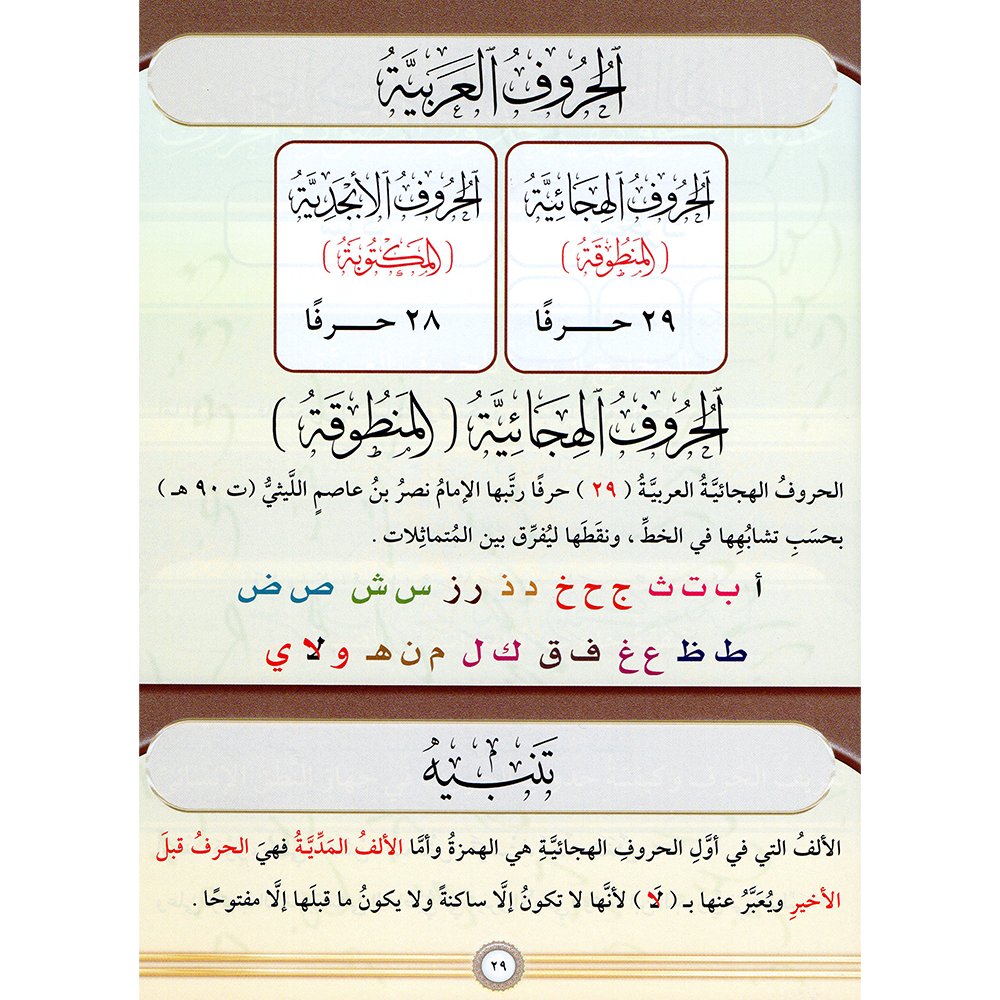 الحُرُوفُ العَرَبِيَّةُ
الحُرُوفُ الهِجَائِيَّةُ
(المَنْطُوقَةُ)
٢٩ حـــرفًا
الحُرُوفُ الأَبْجَدِيَّةُ
(المَكْتُوبَةُ)
٢٨ حـــرفًا
الحُرُوفُ الهِجَائِيَّةُ (المَنْطُوقَةُ)
الحروفُ الهجائيَّةُ العربيَّةُ ( ٢٩ ) حرفًا رتَّبها الإمامُ نصرُ بنُ عاصمٍ اللَّيثيُّ (ت ٩٠ هـ )
بحسَبِ تشابُهِها في الخطِّ ، ونقَطَها ليُفرِّق بين المُتماثِلات .
أ ب ت ث ج ح خ د ذ ر ز س ش ص ض
ط ظ ع غ ف ق ك ل م ن هـ و لا ي
تَنْبِيهٌ
الألفُ التي في أوَّلِ الحروفِ الهجائيَّةِ هي الهمزةُ وأمَّا الألفُ المَدِّيَّةُ فهيَ الحرفُ قبلَ
الأخيرِ ويُعَبَّرُ عنها بـ ( لَا ) لأنَّها لا تكونُ إلَّا ساكنةً ولا يكونُ ما قبلَها إلَّا مفتوحًا .
٢٩